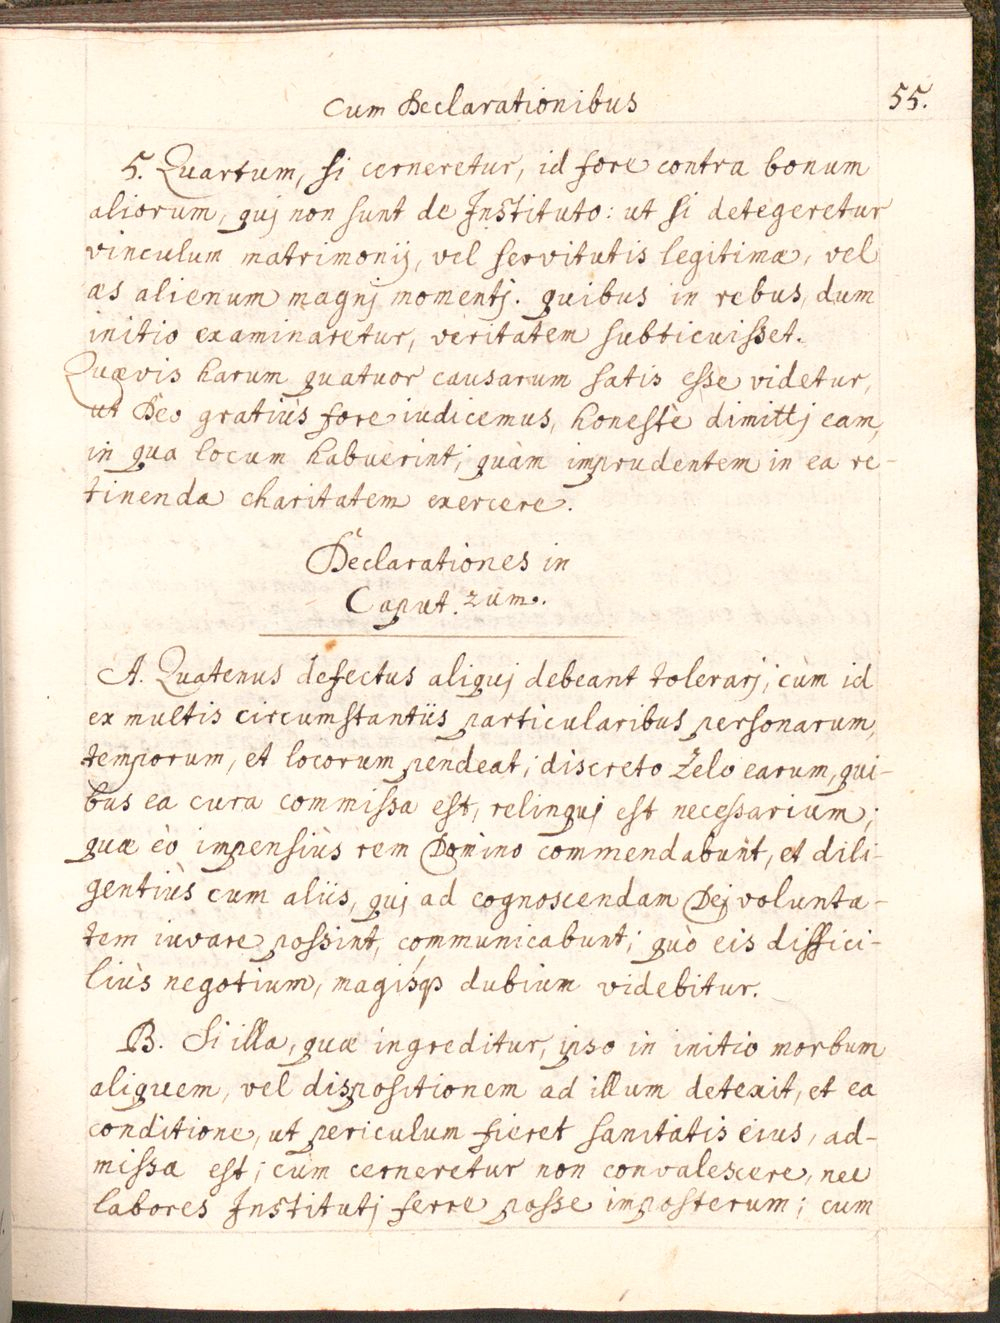 Cum Declarationibus
55.
5. Quartum, si cerneretur, id fore contra bonum
aliorum, quj non sunt de Instituto: ut si detegeretur
vinculum matrimonij, vel servitutis legitimæ, vel
æs alienum magnj momentj. quibus in rebus, dum
initio examinaretur, veritatem subticuisset.
Quævis harum quatuor causarum satis esse videtur,
ut Deo gratiùs fore iudicemus, honestè dimittj eam,
in qua locum habuerint, quàm imprudentem in ea re-
tinenda charitatem exercere.
Declarationes in
Caput. 2um.
A. Quatenus defectus aliquj debeant tolerarj, cùm id
ex multis circumstantiis particularibus personarum,
temporum, et locorum pendeat; discreto Zelo earum, qui-
bus ea cura commissa est, relinquj est necessarium;
quæ eò impensiùs rem Domino commendabunt, et dili-
gentiùs cum aliis, quj ad cognoscendam Dej volunta-
tem iuvare possint, communicabunt; quò eis diffici-
liùs negotium, magisq dubium videbitur.
B. Si illa, quæ ingreditur, ipso in initio morbum
aliquem, vel dispositionem ad illum detexit, et ea
conditione, ut periculum fieret sanitatis eius, ad-
missa est; cùm cerneretur non convalescere, nec
labores Institutj ferre posse imposterum; cum